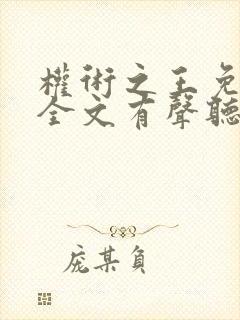 權術之王免
全文有聲聽
庞某負